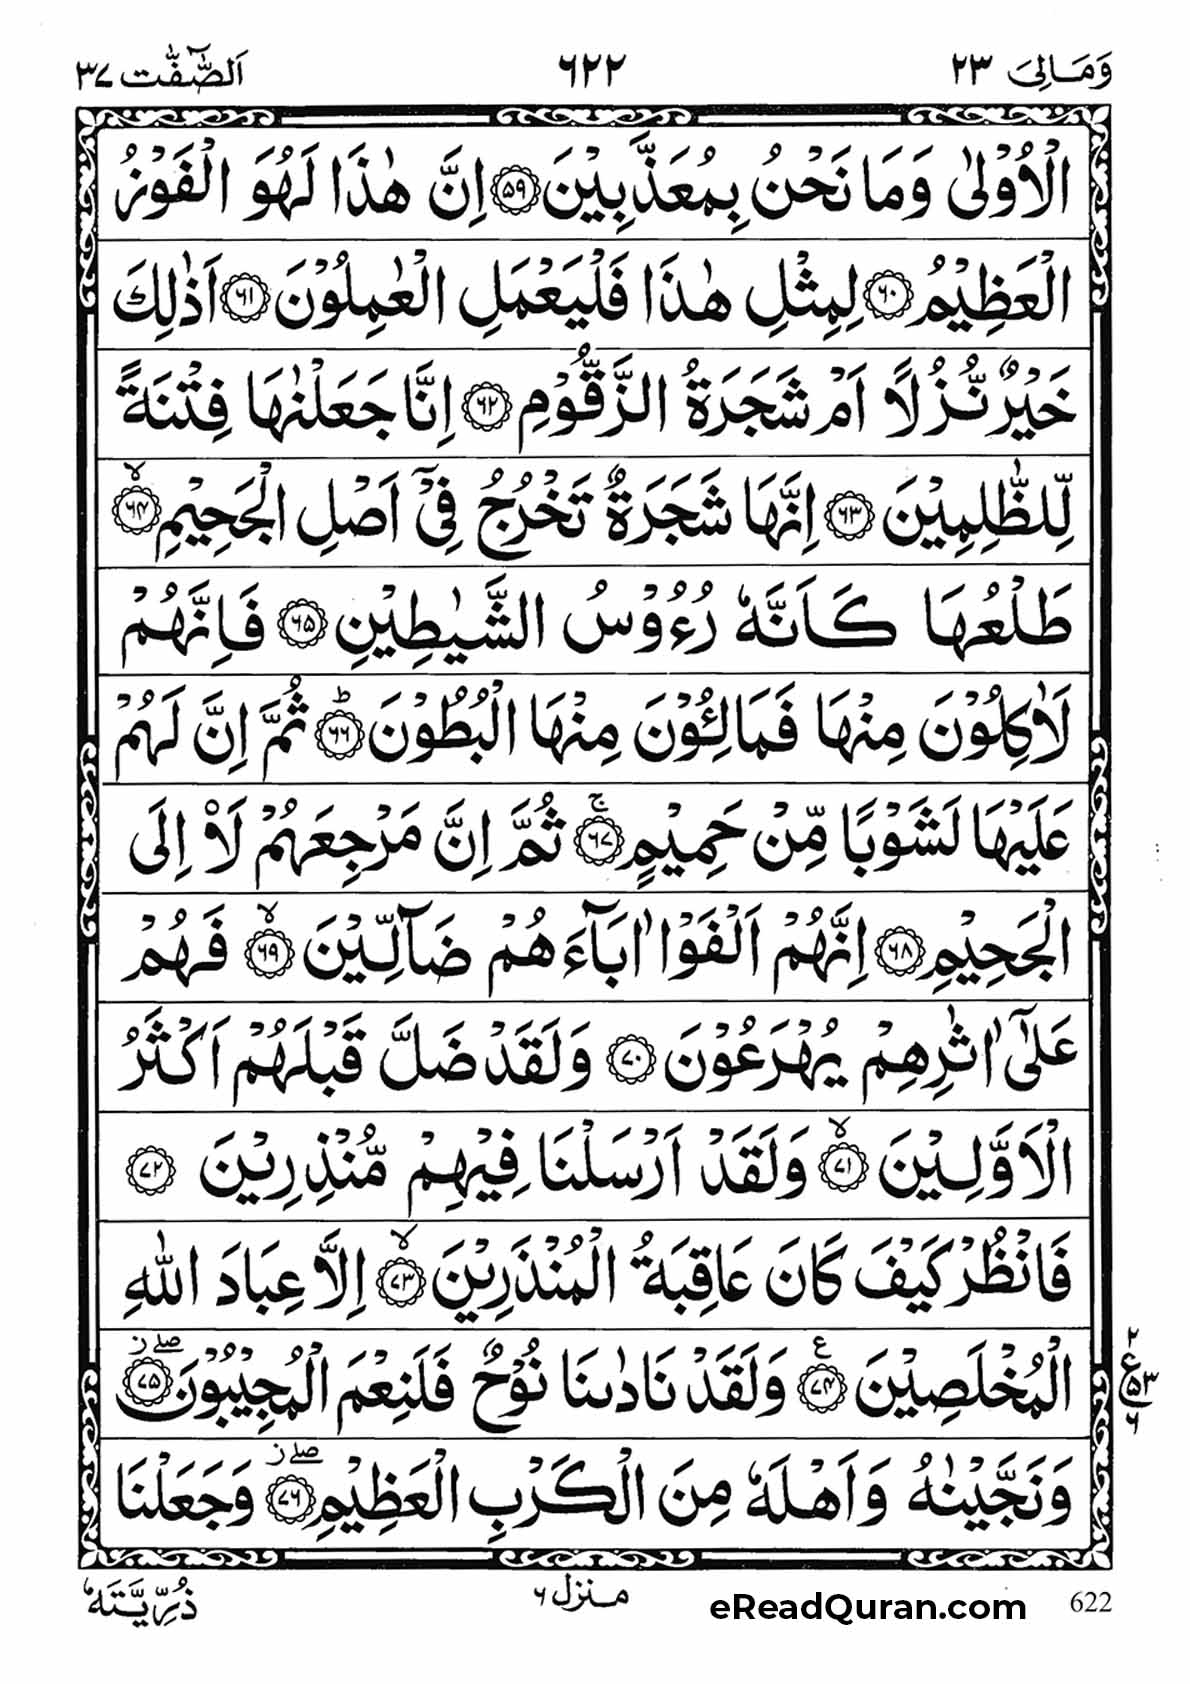 وَمَالِیَ ٢٣
٦٢٢
اَلصّٰٓفّٰت ٣٧
الْاُوْلٰى وَمَا نَحْنُ بِمُعَذَّبِيْنَ ۝٥٩ اِنَّ هٰذَا لَهُوَ الْفَوْزُ
الْعَظِيْمُ ۝٦٠ لِمِثْلِ هٰذَا فَلْيَعْمَلِ الْعٰمِلُوْنَ ۝٦١ اَذٰلِكَ
خَيْرٌ نُّزُلًا اَمْ شَجَرَةُ الزَّقُّوْمِ ۝٦٢ اِنَّا جَعَلْنٰهَا فِتْنَةً
لِّلظّٰلِمِيْنَ ۝٦٣ اِنَّهَا شَجَرَةٌ تَخْرُجُ فِيْٓ اَصْلِ الْجَحِيْمِ ۝٦٤ۙ
طَلْعُهَا كَاَنَّهٗ رُءُوْسُ الشَّيٰطِيْنِ ۝٦٥ فَاِنَّهُمْ
لَاٰكِلُوْنَ مِنْهَا فَمَالِـُٔوْنَ مِنْهَا الْبُطُوْنَ ۝٦٦ؕ ثُمَّ اِنَّ لَهُمْ
عَلَيْهَا لَشَوْبًا مِّنْ حَمِيْمٍ ۝٦٧ۚ ثُمَّ اِنَّ مَرْجِعَهُمْ لَا۟اِلَى
الْجَحِيْمِ ۝٦٨ اِنَّهُمْ اَلْفَوْا اٰبَآءَهُمْ ضَآلِّيْنَ ۝٦٩ۙ فَهُمْ
عَلٰٓى اٰثٰرِهِمْ يُهْرَعُوْنَ ۝٧٠ وَلَقَدْ ضَلَّ قَبْلَهُمْ اَكْثَرُ
الْاَوَّلِيْنَ ۝٧١ۙ وَلَقَدْ اَرْسَلْنَا فِيْهِمْ مُّنْذِرِيْنَ ۝٧٢
فَانْظُرْ كَيْفَ كَانَ عَاقِبَةُ الْمُنْذَرِيْنَ ۝٧٣ۙ اِلَّا عِبَادَ اللّٰهِ
الْمُخْلَصِيْنَ ۝٧٤ ع وَلَقَدْ نَادٰىنَا نُوْحٌ فَلَنِعْمَ الْمُجِيْبُوْنَ ۝٧٥ صلے ز
٢ ع ٥٣ ٦
وَنَجَّيْنٰهُ وَاَهْلَهٗ مِنَ الْكَرْبِ الْعَظِيْمِ ۝٧٦ صلے ز وَجَعَلْنَا
ذُرِّيَّتَهٗ
منزل ٦
eReadQuran.com
622